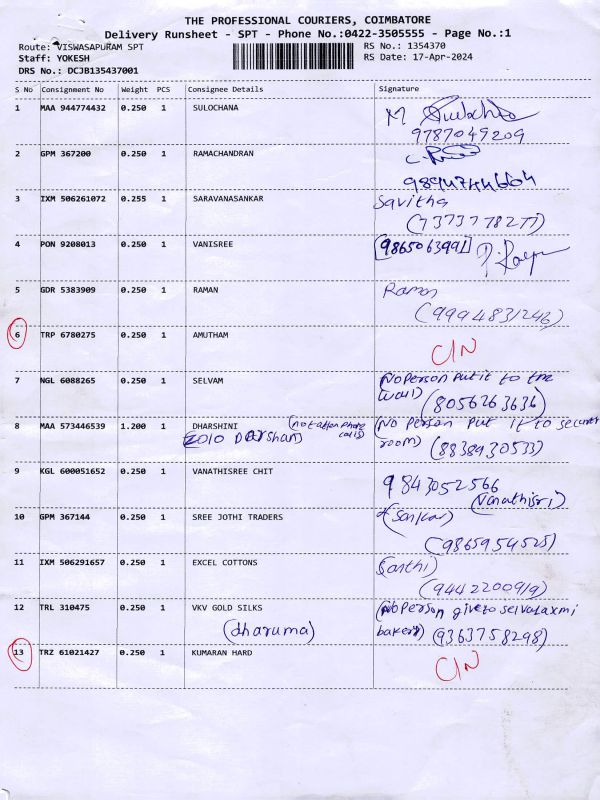 THE PROFESSIONAL COURIERS, COIMBATORE
Delivery Runsheet - SPT - Phone No.:0422-3505555 - Page No.:1
Route: VISWASAPURAM SPT
RS No.: 1354370
Staff: YOKESH
RS Date: 17-Apr-2024
DRS No.: DCJB135437001
S No Consignment No Weight PCS Consignee Details Signature
1 MAA 944774432 0.250 1 SULOCHANA M
9787049209
2 GPM 367200 0.250 1 RAMACHANDRAN
9894744664
3 IXM 506261072 0.255 1 SARAVANASANKAR Savitha
(7373778277)
4 PON 9208013 0.250 1 VANISREE [9865063991]
5 GDR 5383909 0.250 1 RAMAN Raman
(9994831246)
6 TRP 6780275 0.250 1 AMUTHAM C/N
7 NGL 6088265 0.250 1 SELVAM No person put it to the
wall) (8056263636)
8 MAA 573446539 1.200 1 DHARSHINI (not atten phone calls) (No person put it to security
ZOLO Darshan room) (8838930533)
9 KGL 600051652 0.250 1 VANATHISREE CHIT 9843052566
(Vanathisri)
10 GPM 367144 0.250 1 SREE JOTHI TRADERS (Sankar)
(9865954525)
11 IXM 506291657 0.250 1 EXCEL COTTONS
(9442200919)
12 TRL 310475 0.250 1 VKV GOLD SILKS (No person give to selvalaxmi
(dharuma) bakery) (9363758298)
13 TRZ 61021427 0.250 1 KUMARAN HARD C/N